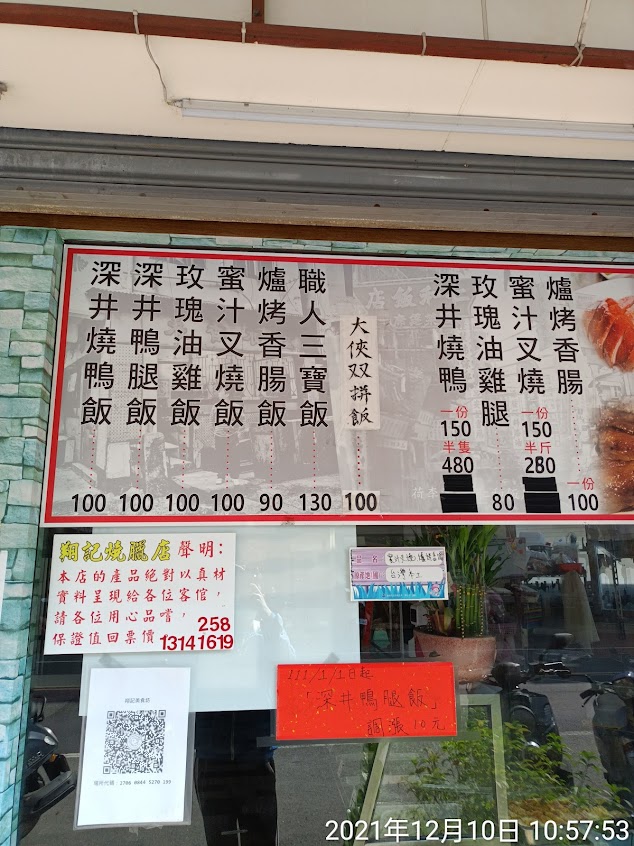 深井燒鴨飯 100
深井鴨腿飯 100
玫瑰油雞飯 100
蜜汁叉燒飯 100
爐烤香腸飯 90
職人三寶飯 130
大俠双拼飯 100
深井燒鴨 一份 150 半隻 480
玫瑰油雞腿 80
蜜汁叉燒 一份 150 半斤 280
爐烤香腸 一份 100
翔記燒臘店聲明:
本店的產品絕對以真材
實料呈現給各位客倌,
請各位用心品嚐,
保證值回票價
258
13141619
台灣本土
111/1/1日起
「深井鴨腿飯」
調漲10元
翔記美食坊
2021年12月10日 10:57:53